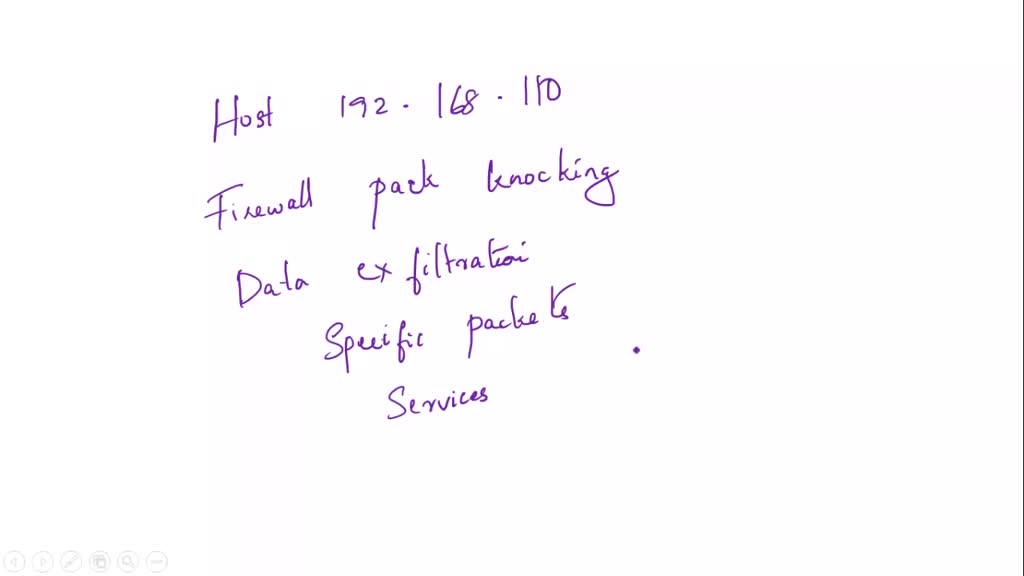 Host 192.168.110
Firewall pack knocking
Data exfiltration
Specific packets
Services